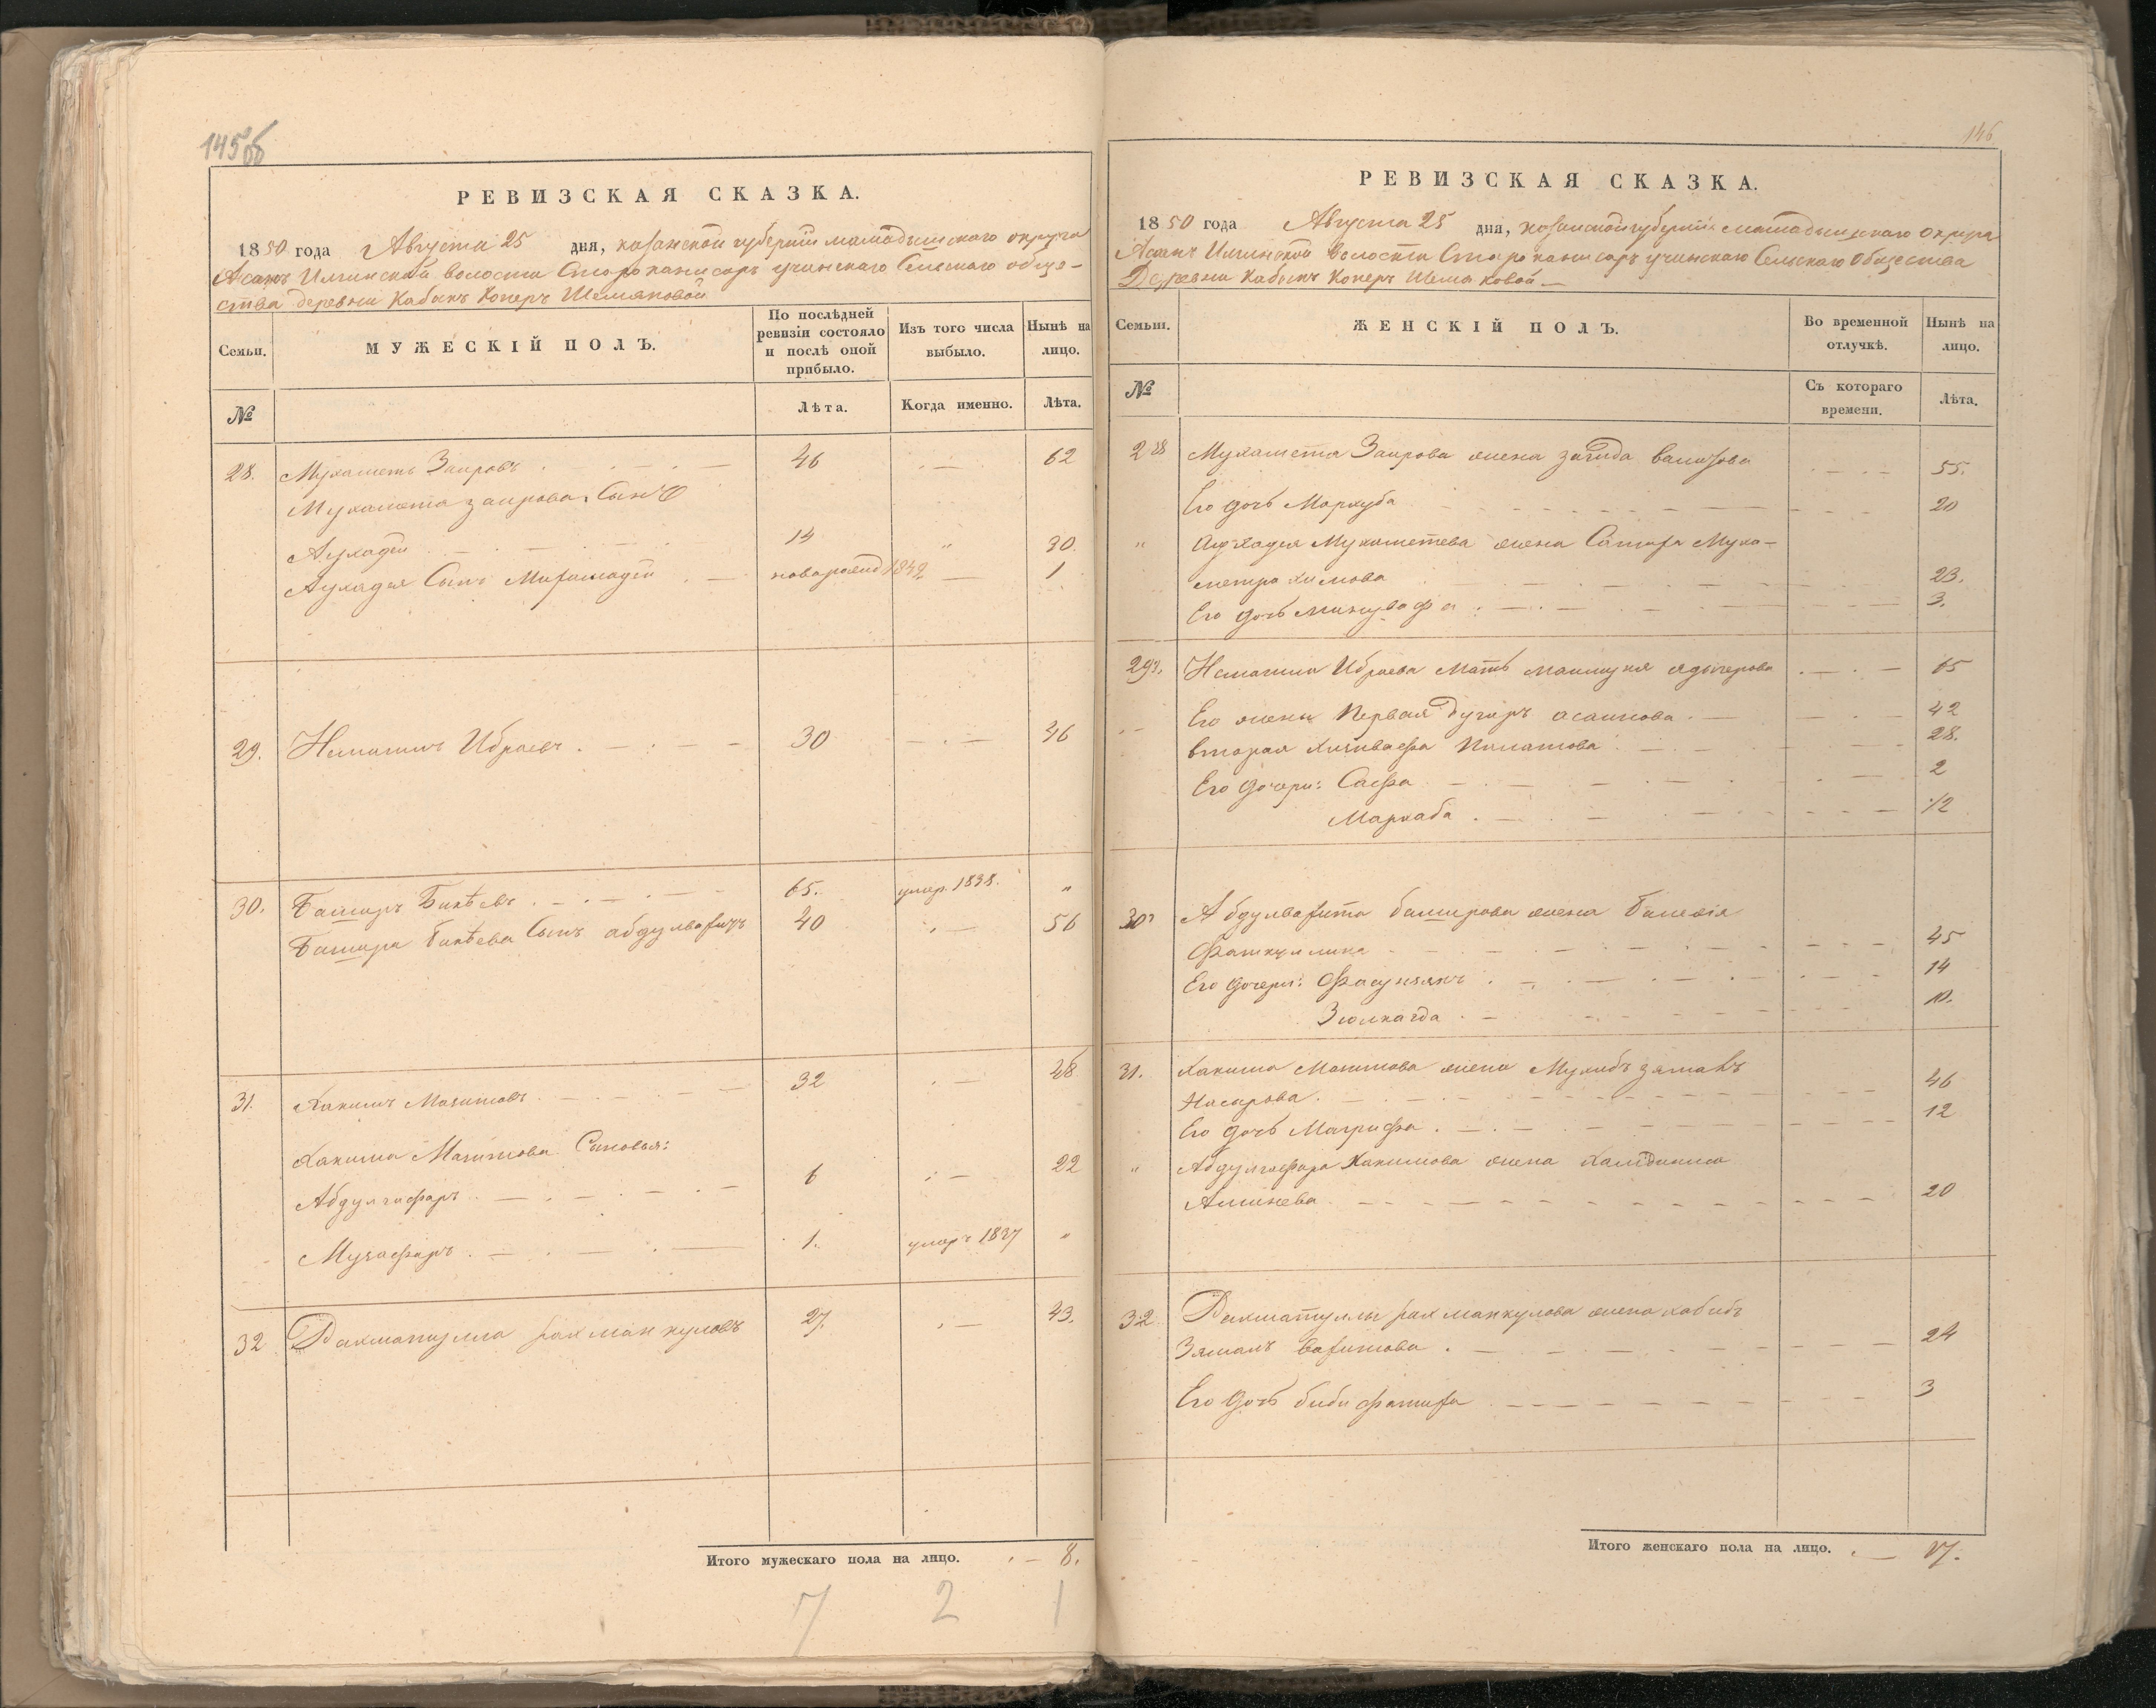 145об
РЕВИЗСКАЯ СКАЗКА.
1850 года Августа 25 дня, казанской губернии мамадышскаго округа
Асанъ Илгинской волости Старо канисаръ учинскаго Сельскаго обще-
ства деревни Кабыкъ Коперъ Шемяковой
Семьи.
МУЖЕСКІЙ ПОЛЪ.
По послѣдней ревизіи состояло и послѣ оной прибыло.
Изъ того числа выбыло.
Нынѣ на лицо.
№
Лѣта.
Когда именно.
Лѣта.
28. Мухаметъ Заировъ . — . — 46 . — 62
Мухамета заирова Сынъ
Аухадей 14 " 30.
Аухадея Сынъ новорожд 1849 — 1
29. Ибраевъ . — . — 30 — . — 46
30. Баширъ Бикѣевъ . — . — 65. умер. 1838. "
Башира Бикѣева Сынъ абдулвагизъ 40 . — 56
31. Хакимъ Мазитовъ . — 32 . — 48
Хакима Мазитова Сыновья:
Абдулгафаръ . — . — 6 . — 22
Музафаръ . — . — 1. умеръ 1837 "
32 Рахматулла рахманкуловъ 27. . — 43.
Итого мужескаго пола на лицо. . — 8.
7 2 1
146
РЕВИЗСКАЯ СКАЗКА.
1850 года Августа 25 дня, казанской губерніи мамадышскаго округа
Асанъ Илгинской волости Старо канисаръ учинскаго Сельскаго Общества
Деревни Кабыкъ Коперъ Шемяковой —
Семьи.
ЖЕНСКІЙ ПОЛЪ.
Во временной отлучкѣ.
Нынѣ на лицо.
№
Съ котораго времени.
Лѣта.
28 Мухамета Заирова жена загида вализова 55.
Его дочь Маркуба 20
" Аухадея Мухаметева жена Сатира Муха-
метрахимова 23.
Его дочь Минувафа . — . — 3.
29. Ибраева Мать маилиуня ядыгерова . — . — 65
Его жены Первая Дугаръ асаинова . — 42
вторая 28.
Его дочери: Сафа 2
Маркаба . — 1/2
30 Абдулвагита баширова жена
Фаткуллина 45
Его дочери: 14
10.
31. Хакима Мазитова жена Мухибъ зямалъ
Насырова . — 46
Его дочь Магрифа . — . — 12
" Абдулгафара Хакимова жена
Алинева 20
32 Рахматуллы рахманкулова жена хабибъ
Зямалъ вагитова . — 24
Его дочь биби фатига 3
Итого женскаго пола на лицо. . — 17.